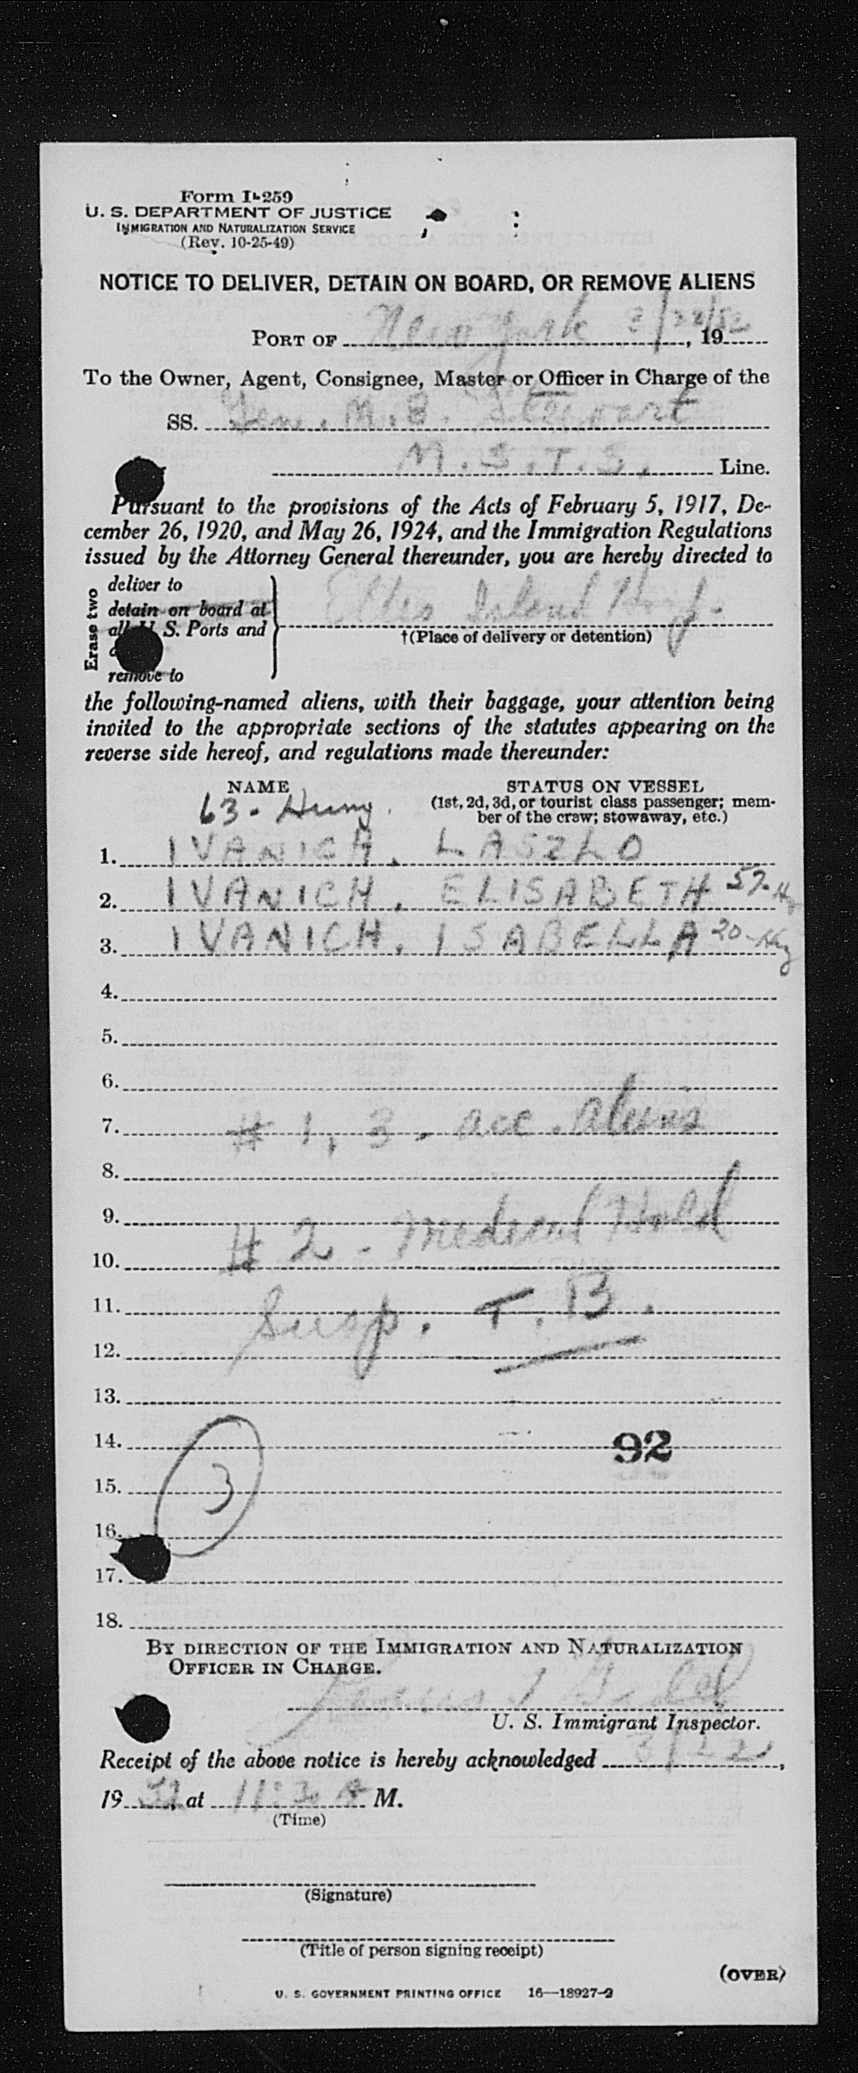 Form I-259
U. S. DEPARTMENT OF JUSTICE
IMMIGRATION AND NATURALIZATION SERVICE
(Rev. 10-25-49)
NOTICE TO DELIVER, DETAIN ON BOARD, OR REMOVE ALIENS
PORT OF New York 3/22/52, 19
To the Owner, Agent, Consignee, Master or Officer in Charge of the
SS. Gen. M. B. Stewart
M.S.T.S. Line.
Pursuant to the provisions of the Acts of February 5, 1917, De-
cember 26, 1920, and May 26, 1924, and the Immigration Regulations
issued by the Attorney General thereunder, you are hereby directed to
Erase two
deliver to
detain on board at
all U. S. Ports and
remove to
Ellis Island Hosp.
†(Place of delivery or detention)
the following-named aliens, with their baggage, your attention being
invited to the appropriate sections of the statutes appearing on the
reverse side hereof, and regulations made thereunder:
NAME
STATUS ON VESSEL
(1st, 2d, 3d, or tourist class passenger; mem-
ber of the crew; stowaway, etc.)
63 - Hung.
1. IVANICH, LASZLO
2. IVANICH, ELISABETH 57-Hg
3. IVANICH, ISABELLA 20-Hg
4.
5.
6.
7. # 1, 3 - acc. aliens
8.
9.
# 2 - Medical Hold
10.
11. Susp. T.B.
12.
13.
14. 92
15. 3
16.
17.
18.
BY DIRECTION OF THE IMMIGRATION AND NATURALIZATION
OFFICER IN CHARGE.
U. S. Immigrant Inspector.
Receipt of the above notice is hereby acknowledged 3/22,
19 52, at 11:30 A M.
(Time)
(Signature)
(Title of person signing receipt)
(OVER)
U. S. GOVERNMENT PRINTING OFFICE 16—18927-2